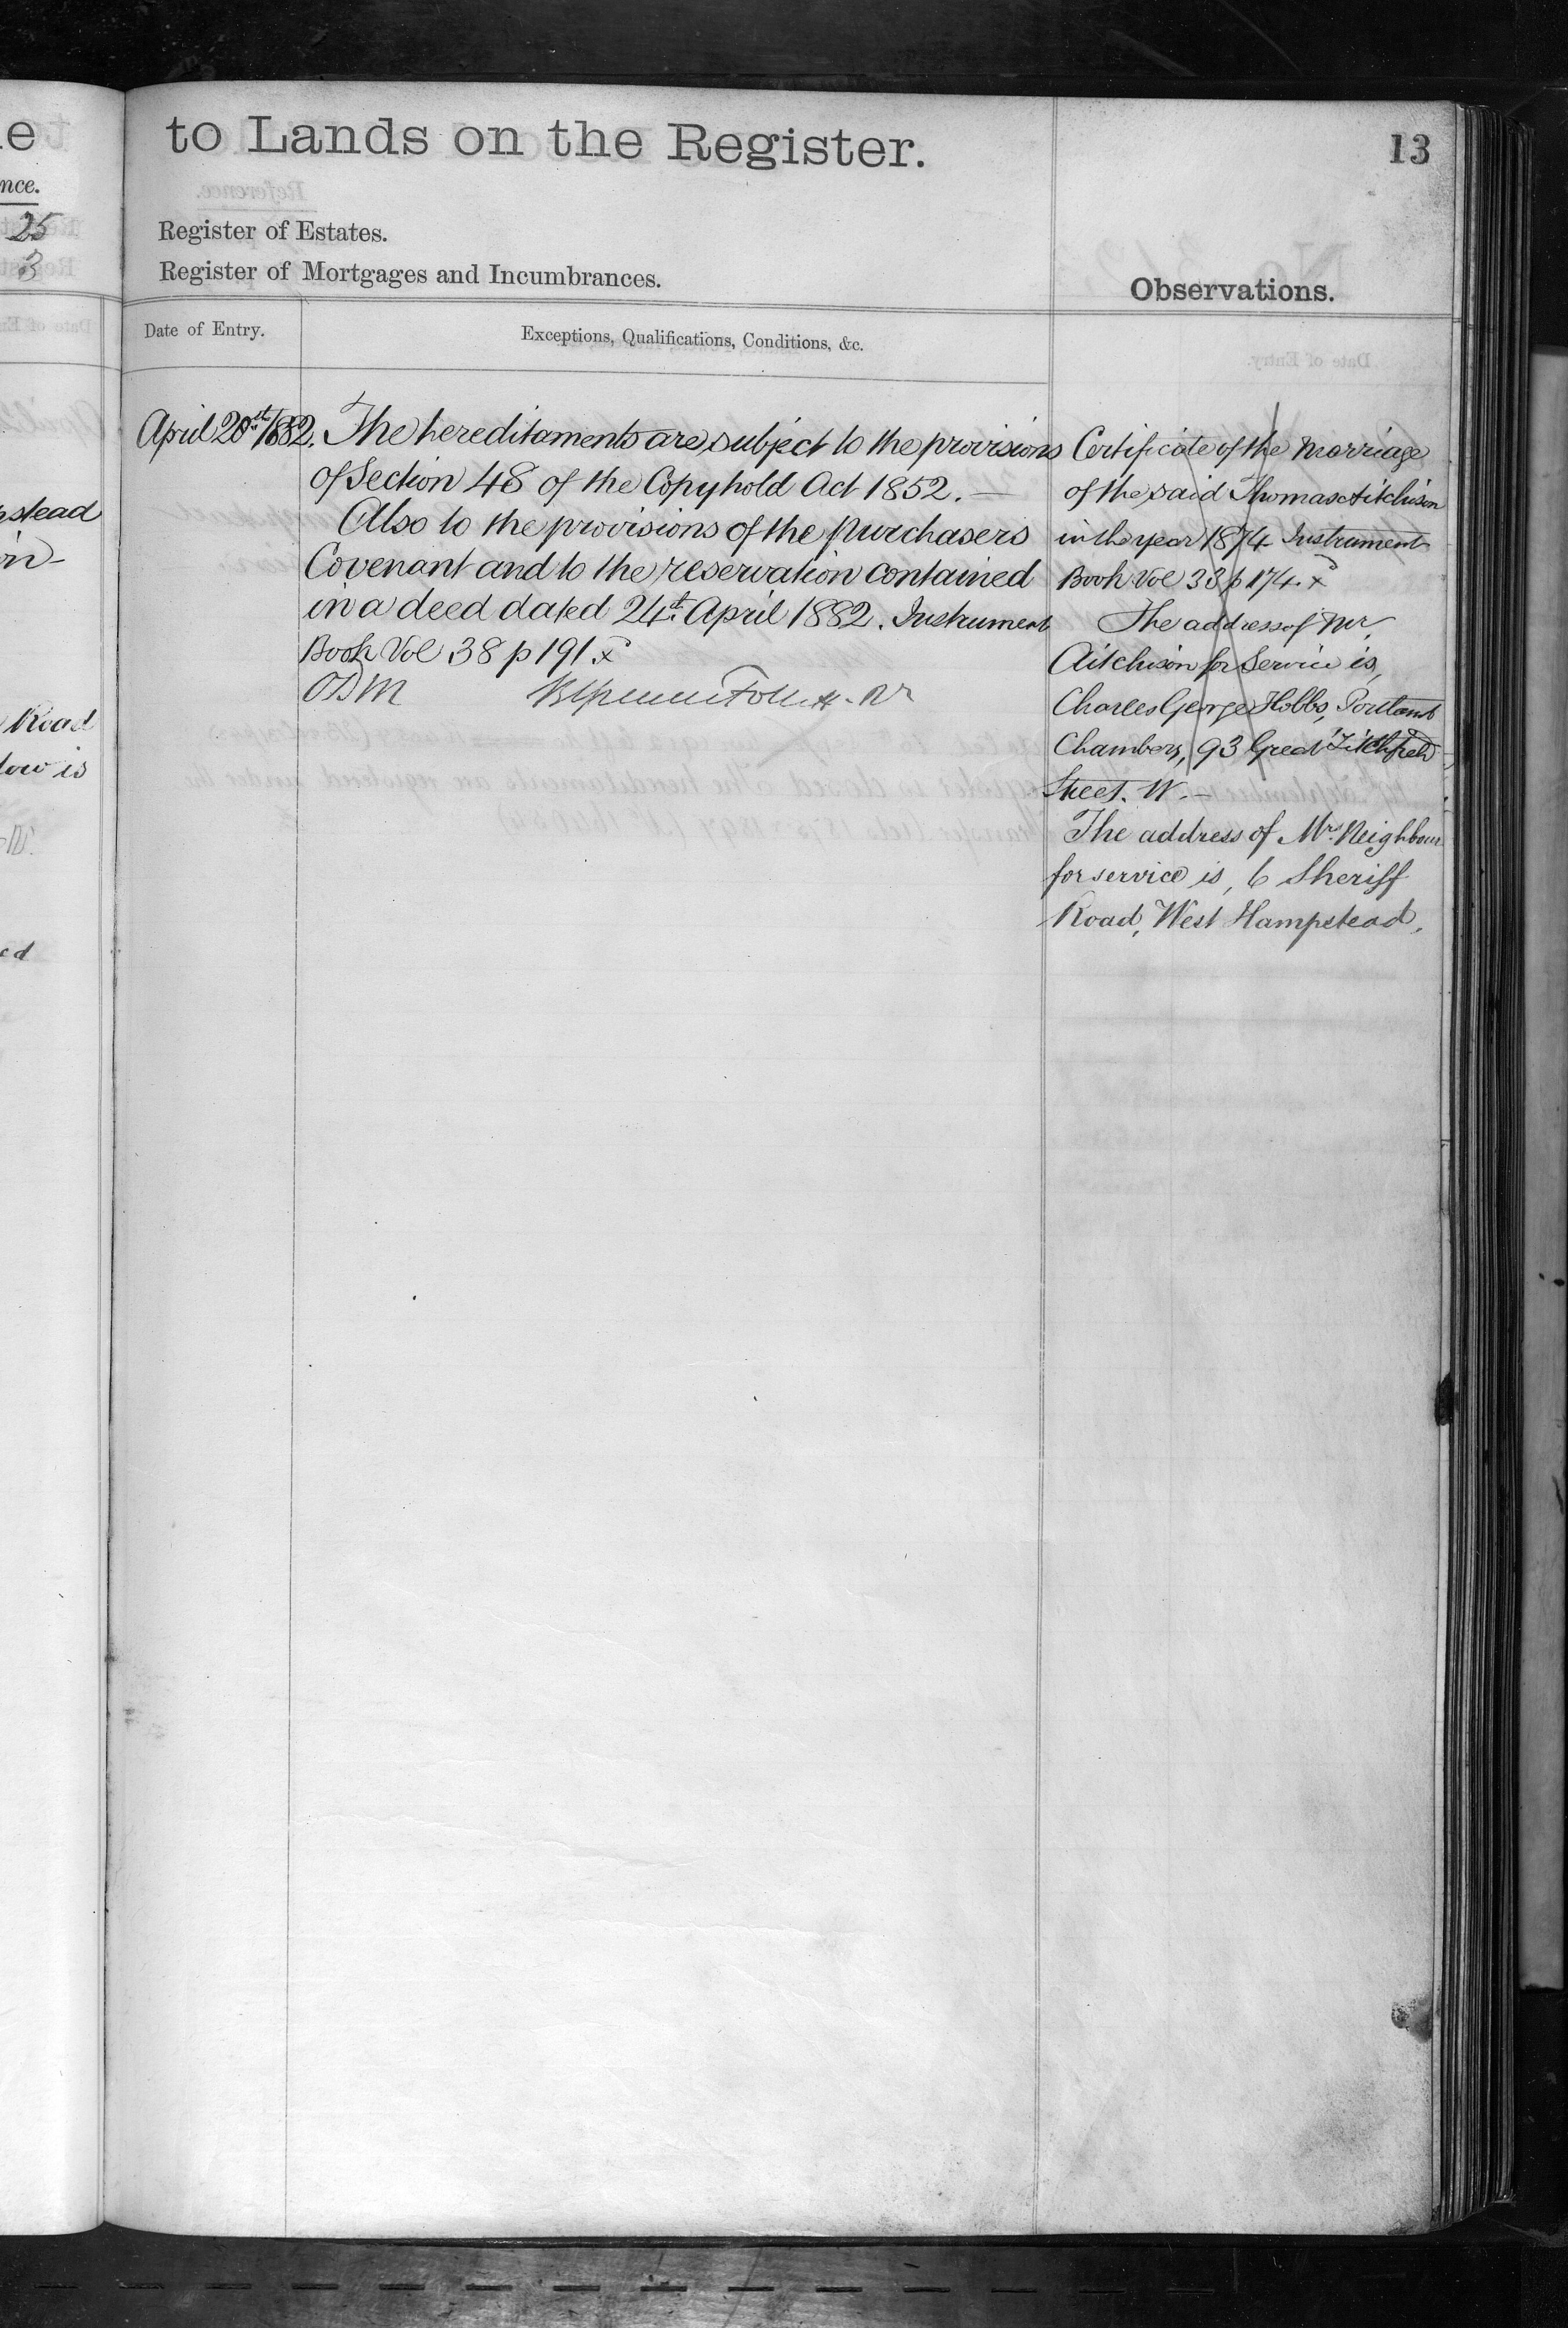 to Lands on the Register.
13
Register of Estates.
Register of Mortgages and Incumbrances.
Observations.
Date of Entry.
Exceptions, Qualifications, Conditions, &c.
nce.
25
3
pstead
Road
low is
ed
April 28st 1882. The hereditaments are subject to the provisions
of Section 48 of the Copyhold Act 1852. —
Also to the provisions of the purchasers
Covenant and to the reservation contained
in a deed dated 24th April 1882. Instrument
Book Vol 38 p 191 x
ODM
Certificate of the marriage
of the said Thomas Aitchison
in the year 1874 Instrument
Book Vol 33 p 174. x
The address of Mr
Aitchison for Service is,
Charles George Hobbs, Portland
Chambers, 93 Great Titchfield
Street. W. —
The address of Mrs Neighbour
for service is, 6 Sheriff
Road, West Hampstead.